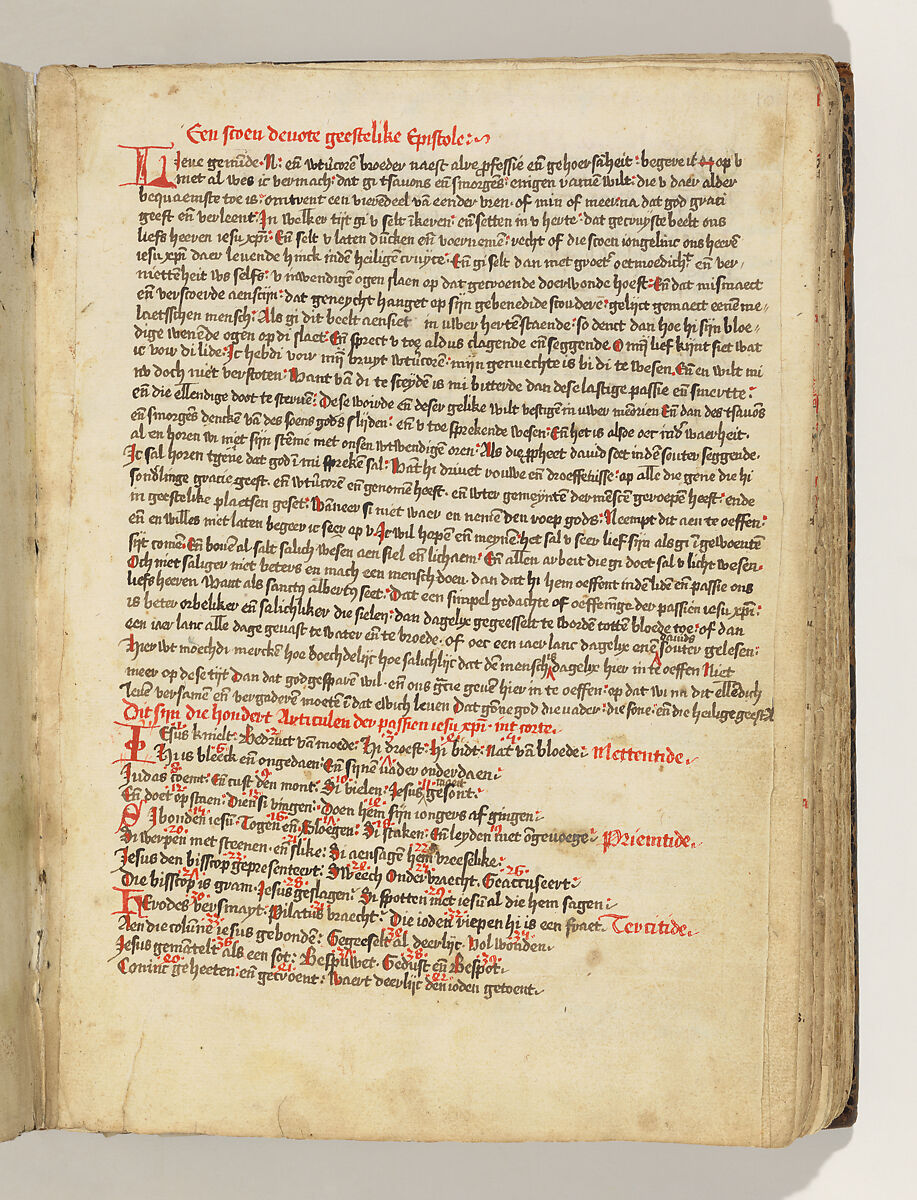 Een scoen deuote geestelike Epistole
Lieue gemīde N: eñ wtūcorē broeder naest alre ꝓfessie eñ gehoersāheit: begere ic op v
met al wes ic vermach: dat gi tsauons eñ smorgēs einigen wilt: die v daer alder
bequaemste toe is: omtrent een vierendeel van eender vren. of min of meer: na dat god grati
geeft eñ verleent: In welker tijt gi v selt īkeren: eñ setten in v herte: dat gecruyste beelt ons
liefs heeren iesu xp̄i: Eñ selt v laten dūcken eñ voernemē: recht of die scoen iongelinc ons heerē
iesu xp̄i daer leuende hinck indē heiligē cruyce: Eñ gi selt dan met groet oetmoedich eñ ver-
niettenheit ws selfs: v inwendigen ogen slaen op dat gecroende doerwonde hoeft: Eñ dat mismaect
eñ verscoerde aenscijn: dat geneycht hanget op sijn gebenedide scoudere: gelijct gemaect eenen me-
laetsschen mensch: Als gi dit beelt aensiet in uwer hertē staende: so denct dan hoe hi sijn bloe-
dige wenēde ogen op di slaet: Eñ sprect v toe aldus clagende eñ seggende O mīn lief kijnt siet wat
ic voir di lide: Ic heb di voir mīn bruyt wtūcorē: mijn genuechte is bi di te wesen: Eñ en wilt mi
nv doch niet verstoten: Want vā di te sceydē is mi bitterde dan dese lastige passie eñ smertte:
eñ die ellendige doot te steruē: Dese woirde eñ deser gelike wilt vestigē in uwer meōrien: Eñ dan des tsauōs
eñ smorgēs dencken vā des soens gods lijden: eñ v toe sprekende wesen: Eñ het is alsoe oec indʳ waerheit.
al en horen wi niet sijn stēme met onsen wtwendigen oren: Als die ꝓpheet dauid seet indē souter seggende.
Ic sal horen tgene dat god ī mi spreken sal: Wat hi driuet rouwe eñ droeffenisse: op alle die gene die hi
sonderlinge gracie geeft. eñ wtūcorē eñ genomē heeft. eñ wter gemeyntē der mēscē geroepē heeft: ende
in geestelike plaetsen geset: Wāneer si niet waer en nemē den roep gods: Neempt dit aen te oeffen:
eñ en willes niet laten begeer ic seer op v: Ic wil hopen eñ meynē: het sal v seer lief sijn als gi ī gewoentē
sijt comē: Eñ bouē al salt salich wesen aen siel eñ lichaem: Eñ allen arbeit die gi doet sal v licht wesen.
Och niet saliger niet beters en mach een mensch doen. dan dat hi hem oeffent indē lidē eñ passie ons
liefs heeren: Want als sanctꝰ albertꝰ seet: Dat een simpel gedachte of oeffenīge der passien iesu xp̄i:
is beter orbeliker eñ salichliker die sielen: dan dagelyc gegeesselt te wordē totten bloede toe: of dan
een iaer lanc alle dage geuast te water eñ te broede. of oec een iaer lanc dagelyc enē dauids souter gelesen:
Hier wt moechdi mercken hoe doechdelijc hoe salichlijc dat dē mensch is dagelyc hier in te oeffen Niet
meer op dese tijt Dan dat god gesparen wil. eñ ons gr̄cie geuē hier in te oeffen: op dat wi na dit ellēdich
leuē versamen eñ vergaderē moetē ī dat ewich leuen Dat gōne god die vader: die sone: eñ die heilige geest
Dit sijn die hondert Articulen der passien iesu xp̄i int corte.
IEsus knielt: Bedruct van moede: Hi droest: Hi bidt: Nat vā bloede: Mettentide.
Hi is bleeck eñ ongedaen: Eñ sijnen vader onderdaen:
Judas coemt: Eñ cust den mont: Si vielen: Jesus maect gesont:
Eñ doet op staen: Dien si vingen: Doen hem sijn iongers af gingen:
SI bonden iesū: Togen eñ: Sloegen: Si staken: Eñ leyden met ōgevoege: Priemtide.
Si werpen met steenen. eñ slike: Si aensagen hem vreeselike:
Jesus den bisscop gepresenteert: Sweech Onderbraecht: Geaccuseert:
Die bisscop is gram: Jesus geslagen: Si spotten met iesū al die hem sagen:
HErodes versmayt: Pilatus braecht: Die ioden riepen hi is een fraet. Tercitide.
Aen die colūne iesus gebonden: Gegeeselt al deerlijc: Vol wonden:
Jesus gemantelt als een sot: Bespuwet: Gedust eñ Bespot:
Coninc geheeten: eñ gecroent: Waert deerlijc den ioden getoent: